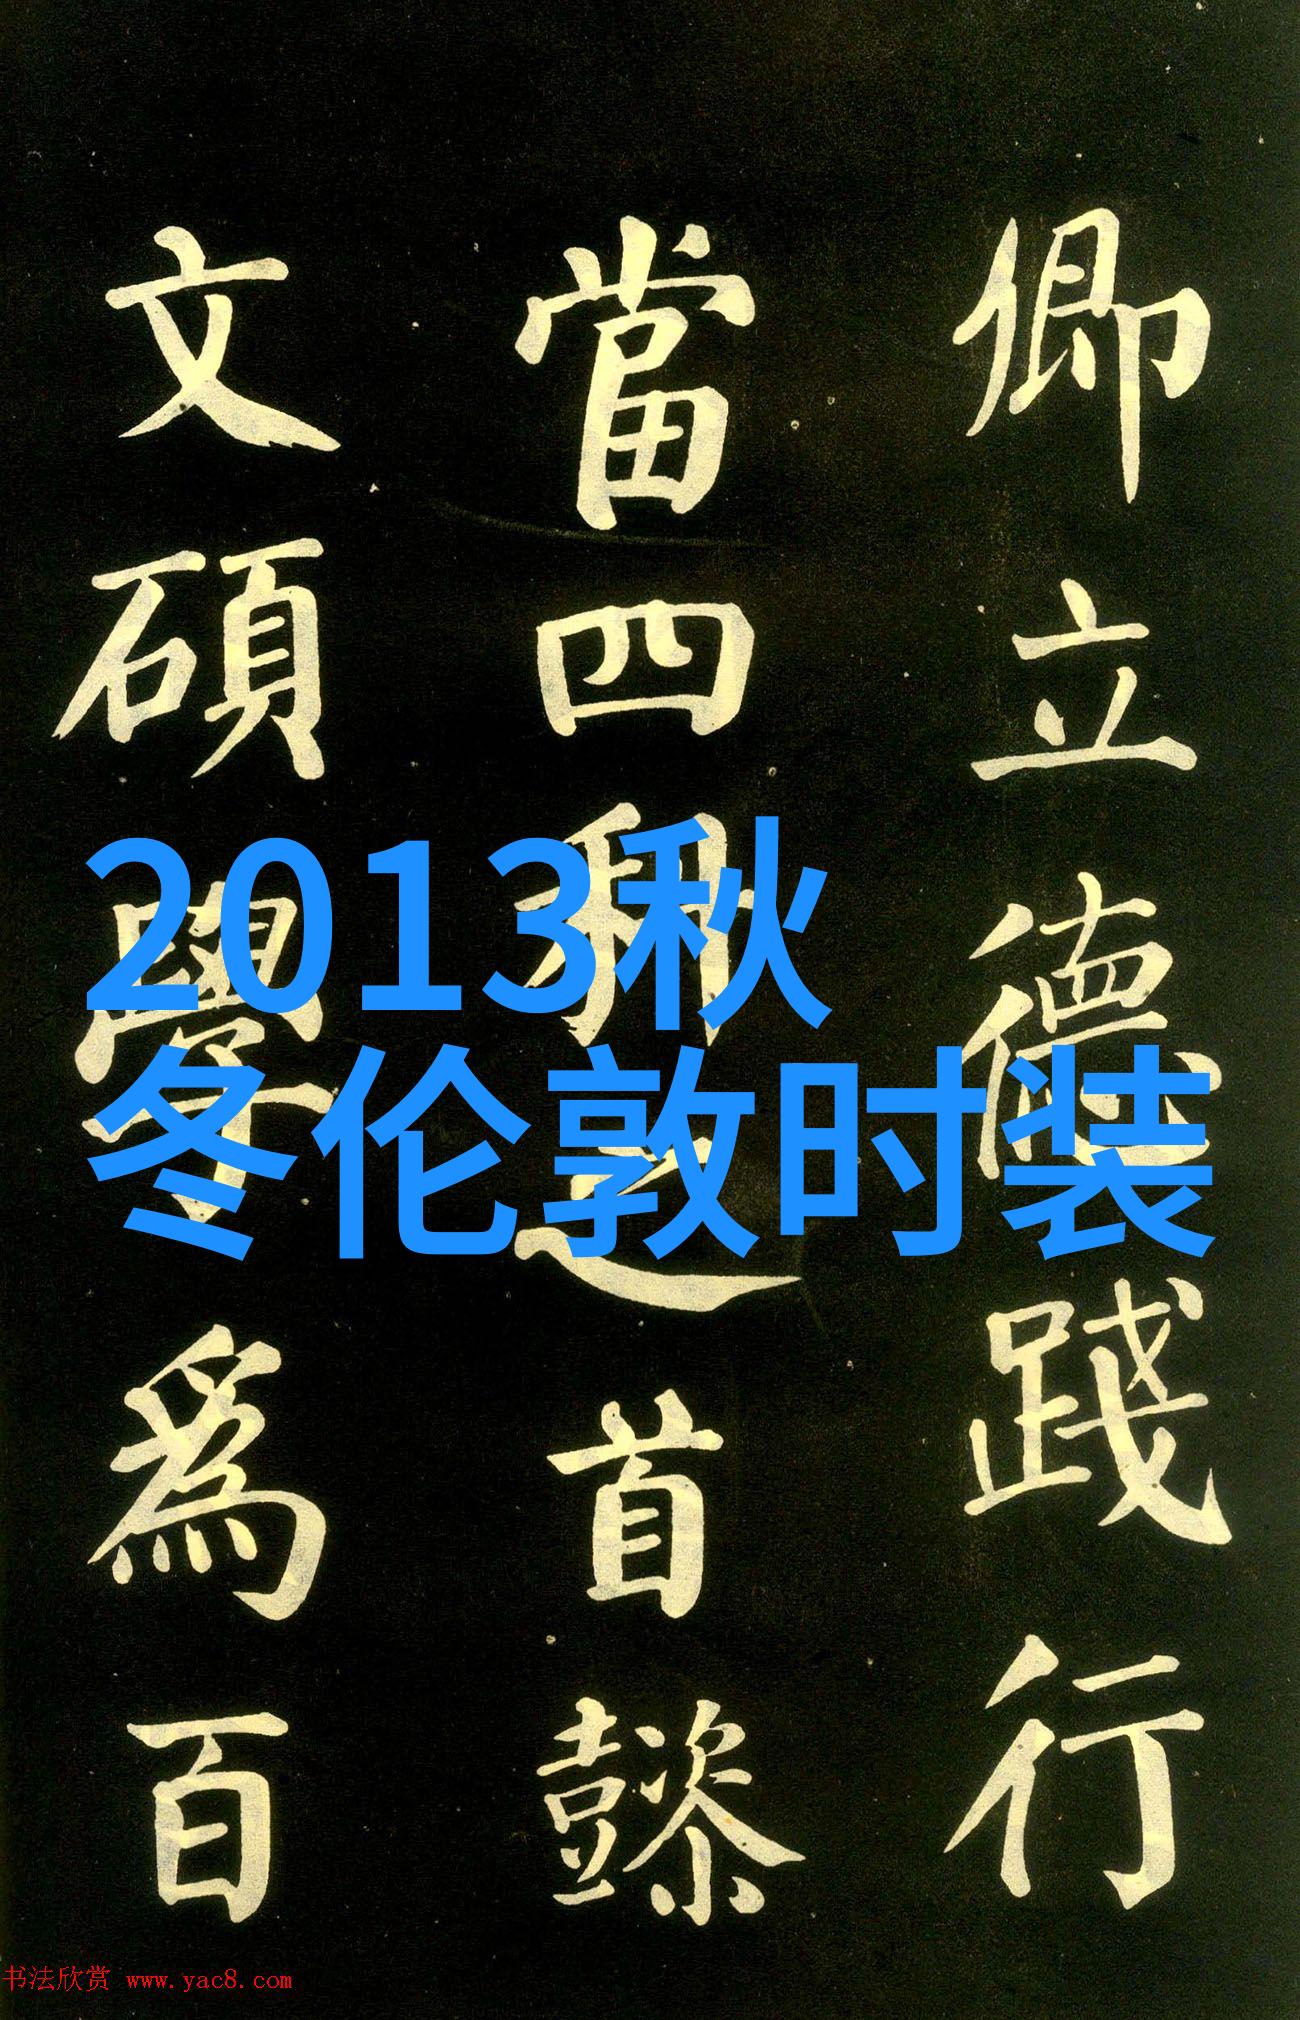 卿立德踐行
當四科之首懿
文碩學爲百
2013秋
冬伦敦时装
书法欣赏 www.yac8.com